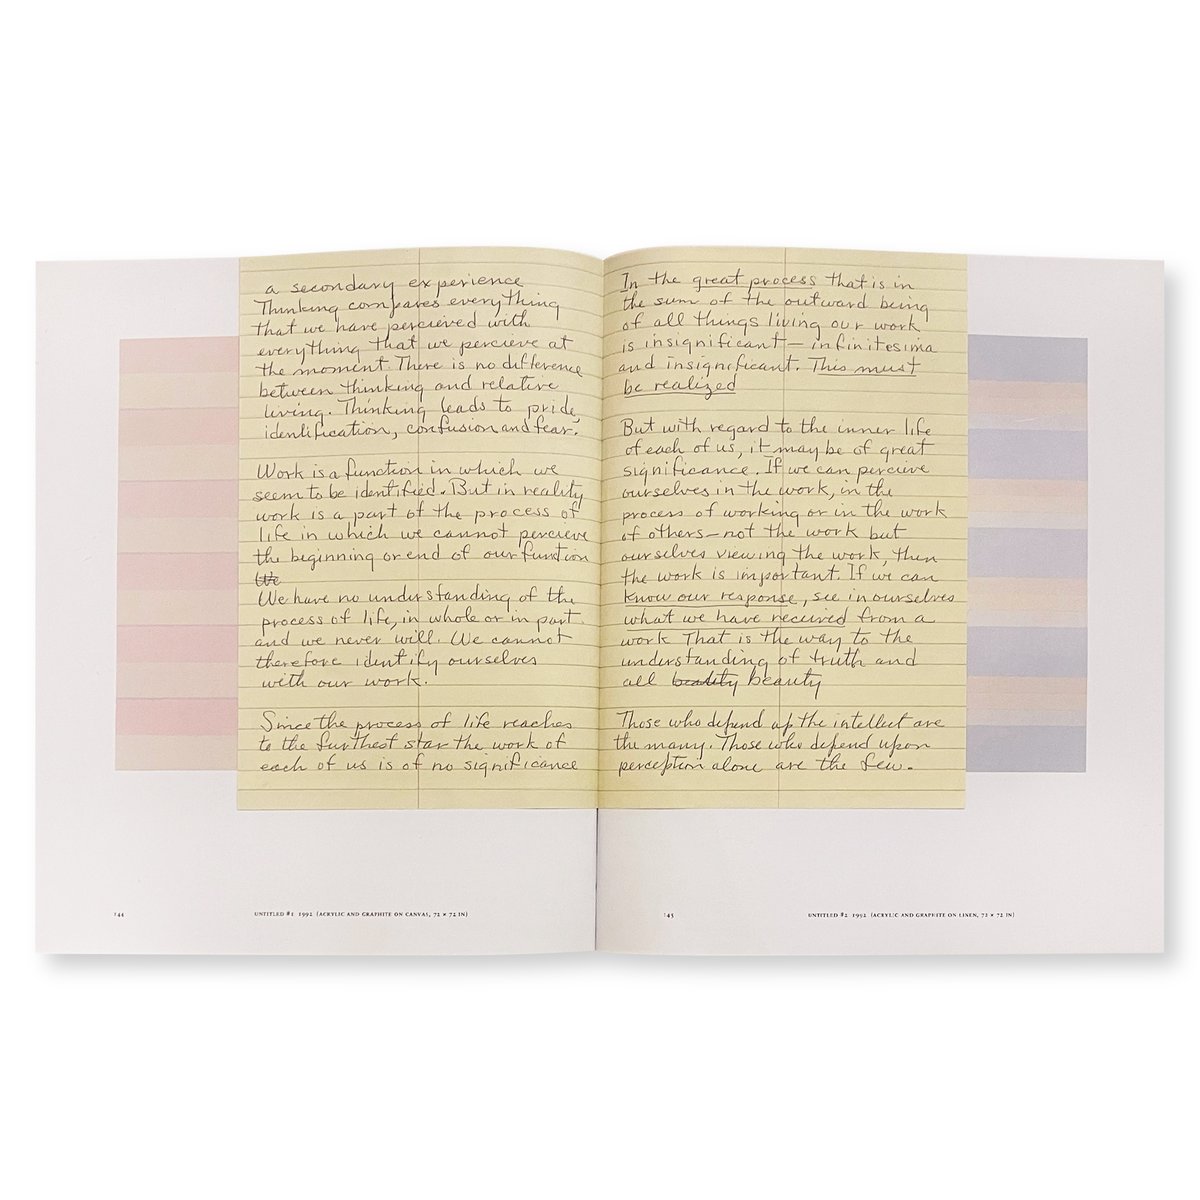 a secondary experience
Thinking compares everything
that we have percieved with
everything that we percieve at
the moment. There is no difference
between thinking and relative
living. Thinking leads to pride,
identification, confusion and fear.
Work is a function in which we
seem to be identified. But in reality
work is a part of the process of
life in which we cannot percieve
the beginning or end of our function
We
We have no understanding of the
process of life, in whole or in part
and we never will. We cannot
therefore identify ourselves
with our work.
Since the process of life reaches
to the furthest star the work of
each of us is of no significance
144
UNTITLED #1 1992 (ACRYLIC AND GRAPHITE ON CANVAS, 72 × 72 IN)
In the great process that is in
the sum of the outward being
of all things living our work
is insignificant — infinitesima
and insignificant. This must
be realized
But with regard to the inner life
of each of us, it may be of great
significance. If we can percieve
ourselves in the work, in the
process of working or in the work
of others – not the work but
ourselves viewing the work, then
the work is important. If we can
know our response, see in ourselves
what we have recieved from a
work That is the way to the
understanding of truth and
all beauty
Those who depend up the intellect are
the many. Those who depend upon
perception alone are the few.
145
UNTITLED #2 1992 (ACRYLIC AND GRAPHITE ON LINEN, 72 × 72 IN)